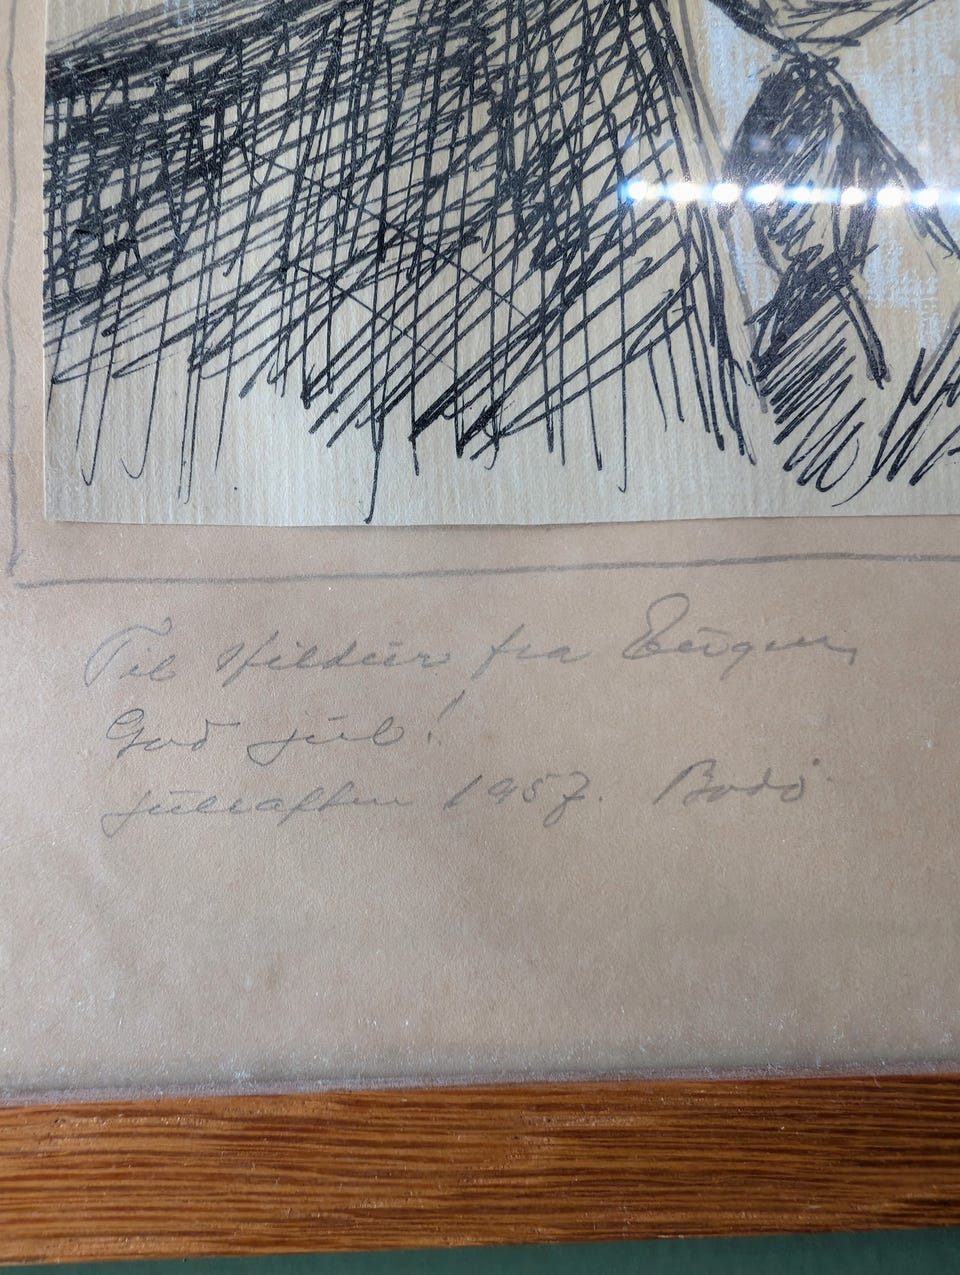 Til Hildur fra Eugen,
God jul!
juleaften 1957. Bodö